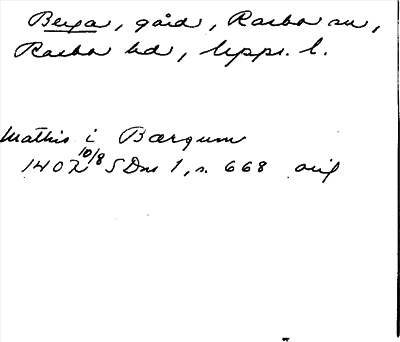 Berga, gård, Rasbo sn,
Rasbo hd, Upps. l.
Mathis i Bærgum
1402 10/8 SDns 1, s. 668 orig